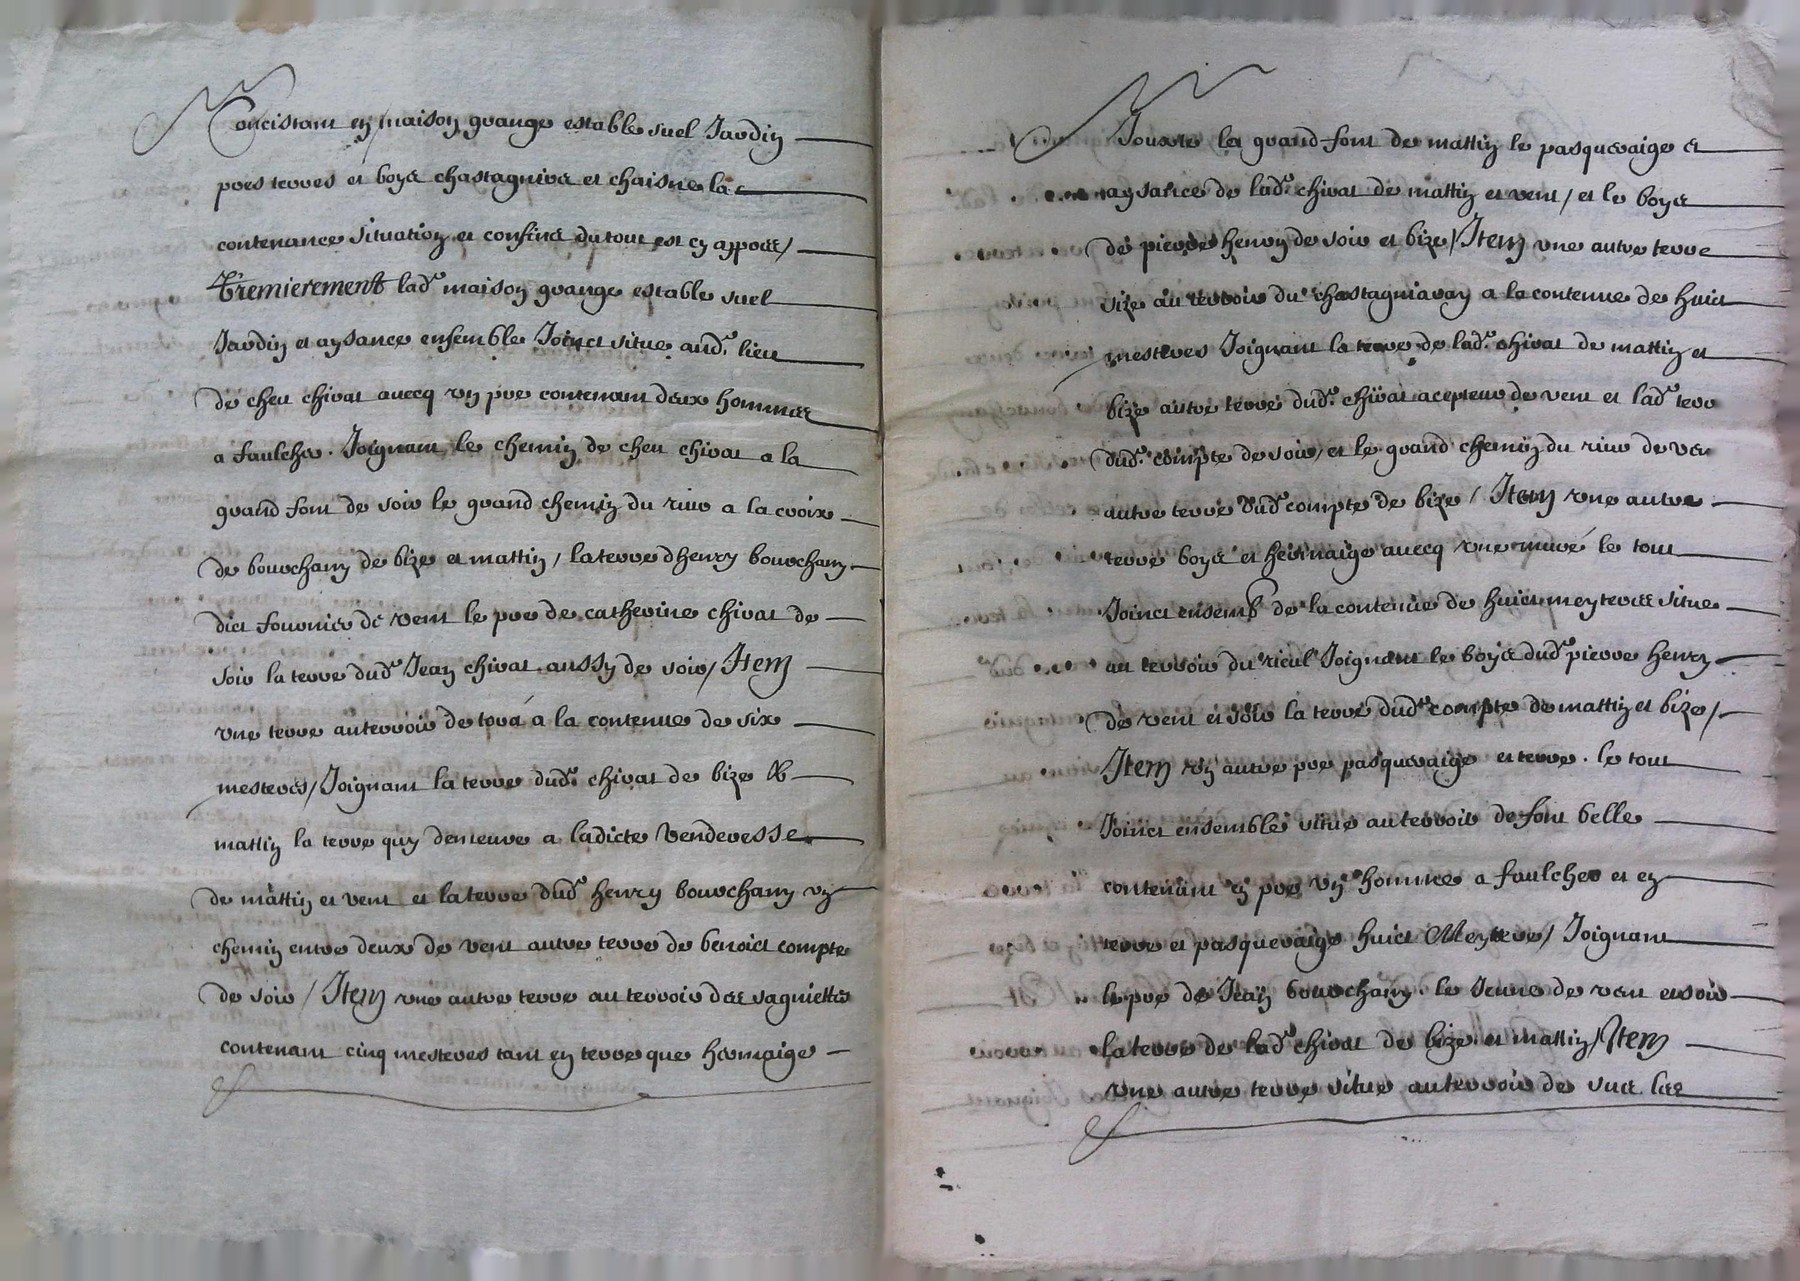 Concistant en maison grange estable suel Jardin
pres terres et boys chastagniers et chaisne la
contenance situation et confins du tout est cy appres /
Premierement lad. maison grange estable suel
Jardin et aysance ensemble Joinct situe aud. lieu
de cheu chivat avecq un pre contenant deux hommes
a faulcher. Joignant le chemin de cheu chivat a la
grand font de soir le grand chemin du riu a la croix
de bourchany de bize et mattin / la terre dhenry bourchany
dict fournier de vent le pre de catherine chivat de
soir la terre dud. Jean chivat aussy de soir / Item
une terre au terroir de a la contenue de six
mesteres / Joignant la terre dud. chivat de bize &
mattin la terre quy demeure a ladicte Venderesse
de mattin et vent et la terre dud. henry bourchany un
chemin entre deux de vent autre terre de benoict compte
de soir / Item une autre terre au terroir des sagniettes
contenant cinq mesteres tant en terre que hermaige
la grand font de mattin le pasqueraige et
aysance de lad. chivat de mattin et vent / et le boys
de pierre henry de soir et bize / Item une autre terre
size au terroir du chastagniaray a la contenue de huict
mesteres Joignant la terre de lad. chivat de mattin et
bize autre terre dud. chivat acepteur de vent et lad. terr
dud. compte de soir / et le grand chemin du riu de ven
autre terre dud. compte de bize / Item une autre
terre boys et hermaige avecq une mure le tout
Joinct ensemb de la contenue de huict meyteres situe
au terroir du rieul Joignant le boys dud. pierre henry
de vent et soir la terre dud. compte de mattin et bize /
Item un autre pre pasqueraige et terre. le tout
Joinct ensemble situe au terroir de font belle
contenant en pre un homme a faulcher et en
terre et pasqueraige huict Meytere / Joignant
le pre de Jean bourchany. le Jeune de vent et soir
la terre de lad. chivat de bize et mattin / Item
une autre terre situe au terroir de sus les